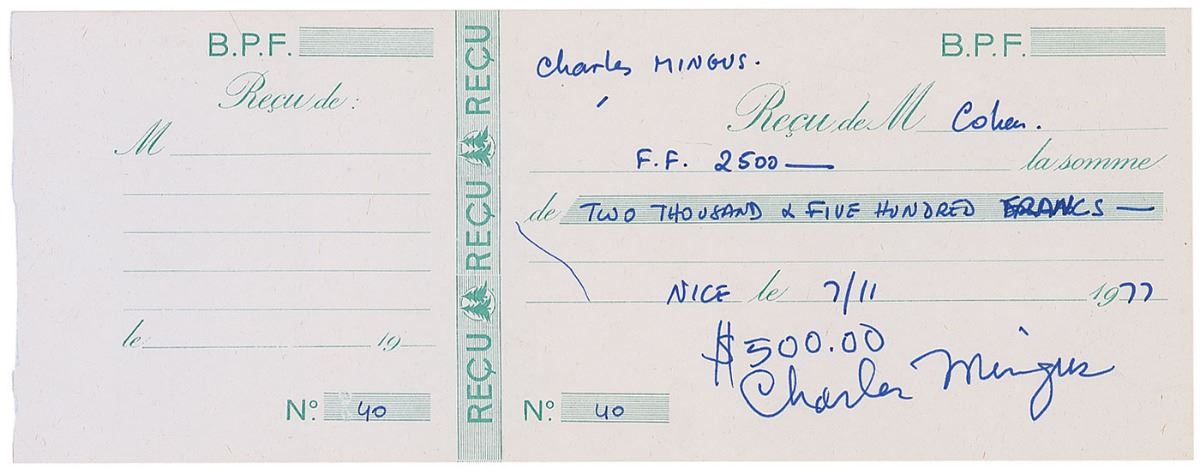 B.P.F.
Reçu de :
M
le 19
N° 40
REÇU REÇU REÇU
Charles MINGUS.
B.P.F.
Reçu de M Cohen.
F.F. 2500— la somme
de TWO THOUSAND & FIVE HUNDRED FRANCS —
NICE le 7/11 1977
$500.00
Charles Mingus
N° 40